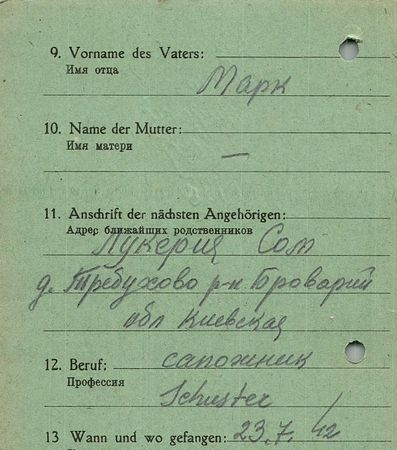 9. Vorname des Vaters:
Имя отца
Марк
10. Name der Mutter:
Имя матери
—
11. Anschrift der nächsten Angehörigen:
Адрес ближайших родственников
Лукерия Сом
д. Требухово р-н Броварий
обл Киевская
12. Beruf: сапожник
Профессия
Schuster
13 Wann und wo gefangen: 23.7.42